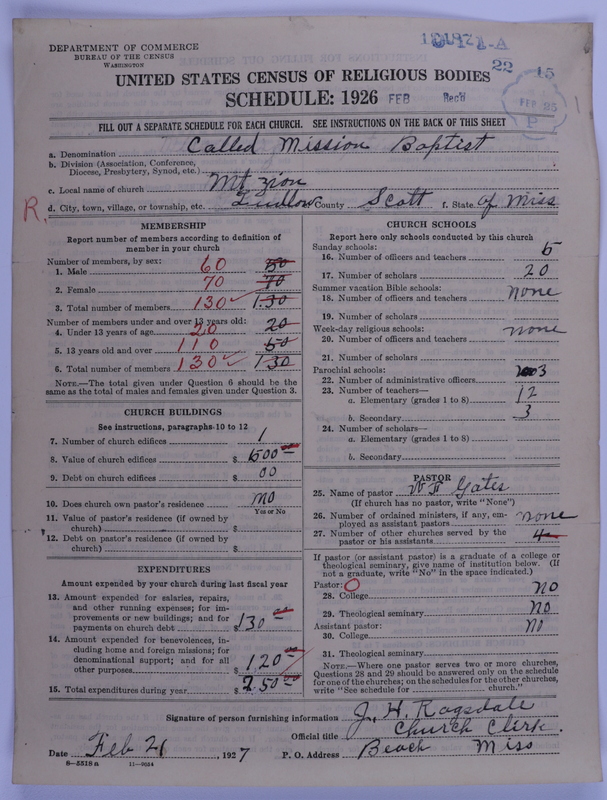 DEPARTMENT OF COMMERCE
BUREAU OF THE CENSUS
WASHINGTON
22 15
UNITED STATES CENSUS OF RELIGIOUS BODIES
SCHEDULE: 1926 FEB Rec'd
FEB 25
P
FILL OUT A SEPARATE SCHEDULE FOR EACH CHURCH. SEE INSTRUCTIONS ON THE BACK OF THIS SHEET
a. Denomination Called Mission Baptist
b. Division (Association, Conference,
Diocese, Presbytery, Synod, etc.)
c. Local name of church Mt zion
R. d. City, town, village, or township, etc. Ludlow County Scott f. State of Miss
MEMBERSHIP
Report number of members according to definition of
member in your church
Number of members, by sex:
1. Male 60 50
2. Female 70 70
3. Total number of members 130 130
Number of members under and over 13 years old:
4. Under 13 years of age 20 20
5. 13 years old and over 110 50
6. Total number of members 130 130
NOTE.—The total given under Question 6 should be the
same as the total of males and females given under Question 3.
CHURCH BUILDINGS
See instructions, paragraphs 10 to 12
7. Number of church edifices 1
8. Value of church edifices $ 1500
9. Debt on church edifices $ 00
10. Does church own pastor's residence no
Yes or No
11. Value of pastor's residence (if owned by
church) $
12. Debt on pastor's residence (if owned by
church) $
EXPENDITURES
Amount expended by your church during last fiscal year
13. Amount expended for salaries, repairs,
and other running expenses; for im-
provements or new buildings; and for
payments on church debt $ 130
14. Amount expended for benevolences, in-
cluding home and foreign missions; for
denominational support; and for all
other purposes $ 120
15. Total expenditures during year $ 250
CHURCH SCHOOLS
Report here only schools conducted by this church
Sunday schools:
16. Number of officers and teachers 5
17. Number of scholars 20
Summer vacation Bible schools:
18. Number of officers and teachers none
19. Number of scholars
Week-day religious schools: none
20. Number of officers and teachers
21. Number of scholars
Parochial schools:
22. Number of administrative officers 3
23. Number of teachers—
a. Elementary (grades 1 to 8) 12
b. Secondary 3
24. Number of scholars—
a. Elementary (grades 1 to 8)
b. Secondary
PASTOR
25. Name of pastor W F Gates
(If church has no pastor, write "None")
26. Number of ordained ministers, if any, em-
ployed as assistant pastors none
27. Number of other churches served by the
pastor or his assistants 4
If pastor (or assistant pastor) is a graduate of a college or
theological seminary, give name of institution below. (If
not a graduate, write "No" in the space indicated.)
Pastor: O
28. College no
29. Theological seminary no
Assistant pastor: no
30. College
31. Theological seminary
NOTE.—Where one pastor serves two or more churches,
Questions 28 and 29 should be answered only on the schedule
for one of the churches; on the schedules for the other churches,
write "See schedule for church."
Signature of person furnishing information J. H. Ragsdale
Official title Church Clerk.
Date Feb 21, 1927 P. O. Address Beach Miss
8-5518 a 11-9024